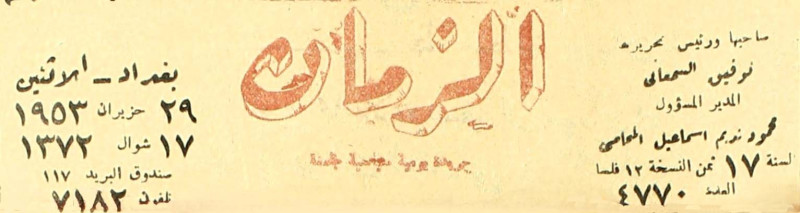 صاحبها ورئيس تحريرها
توفيق السمعاني
المدير المسؤول
محمود نديم اسماعيل المحامي
السنة ١٧ ثمن النسخة ١٢ فلسا
العدد ٤٧٧٠
الزمان
جريدة يومية سياسية
بغداد - الاثنين
٢٩ حزيران ١٩٥٣
١٧ شوال ١٣٧٢
صندوق البريد ١١٧
تلفون ٧١٨٢